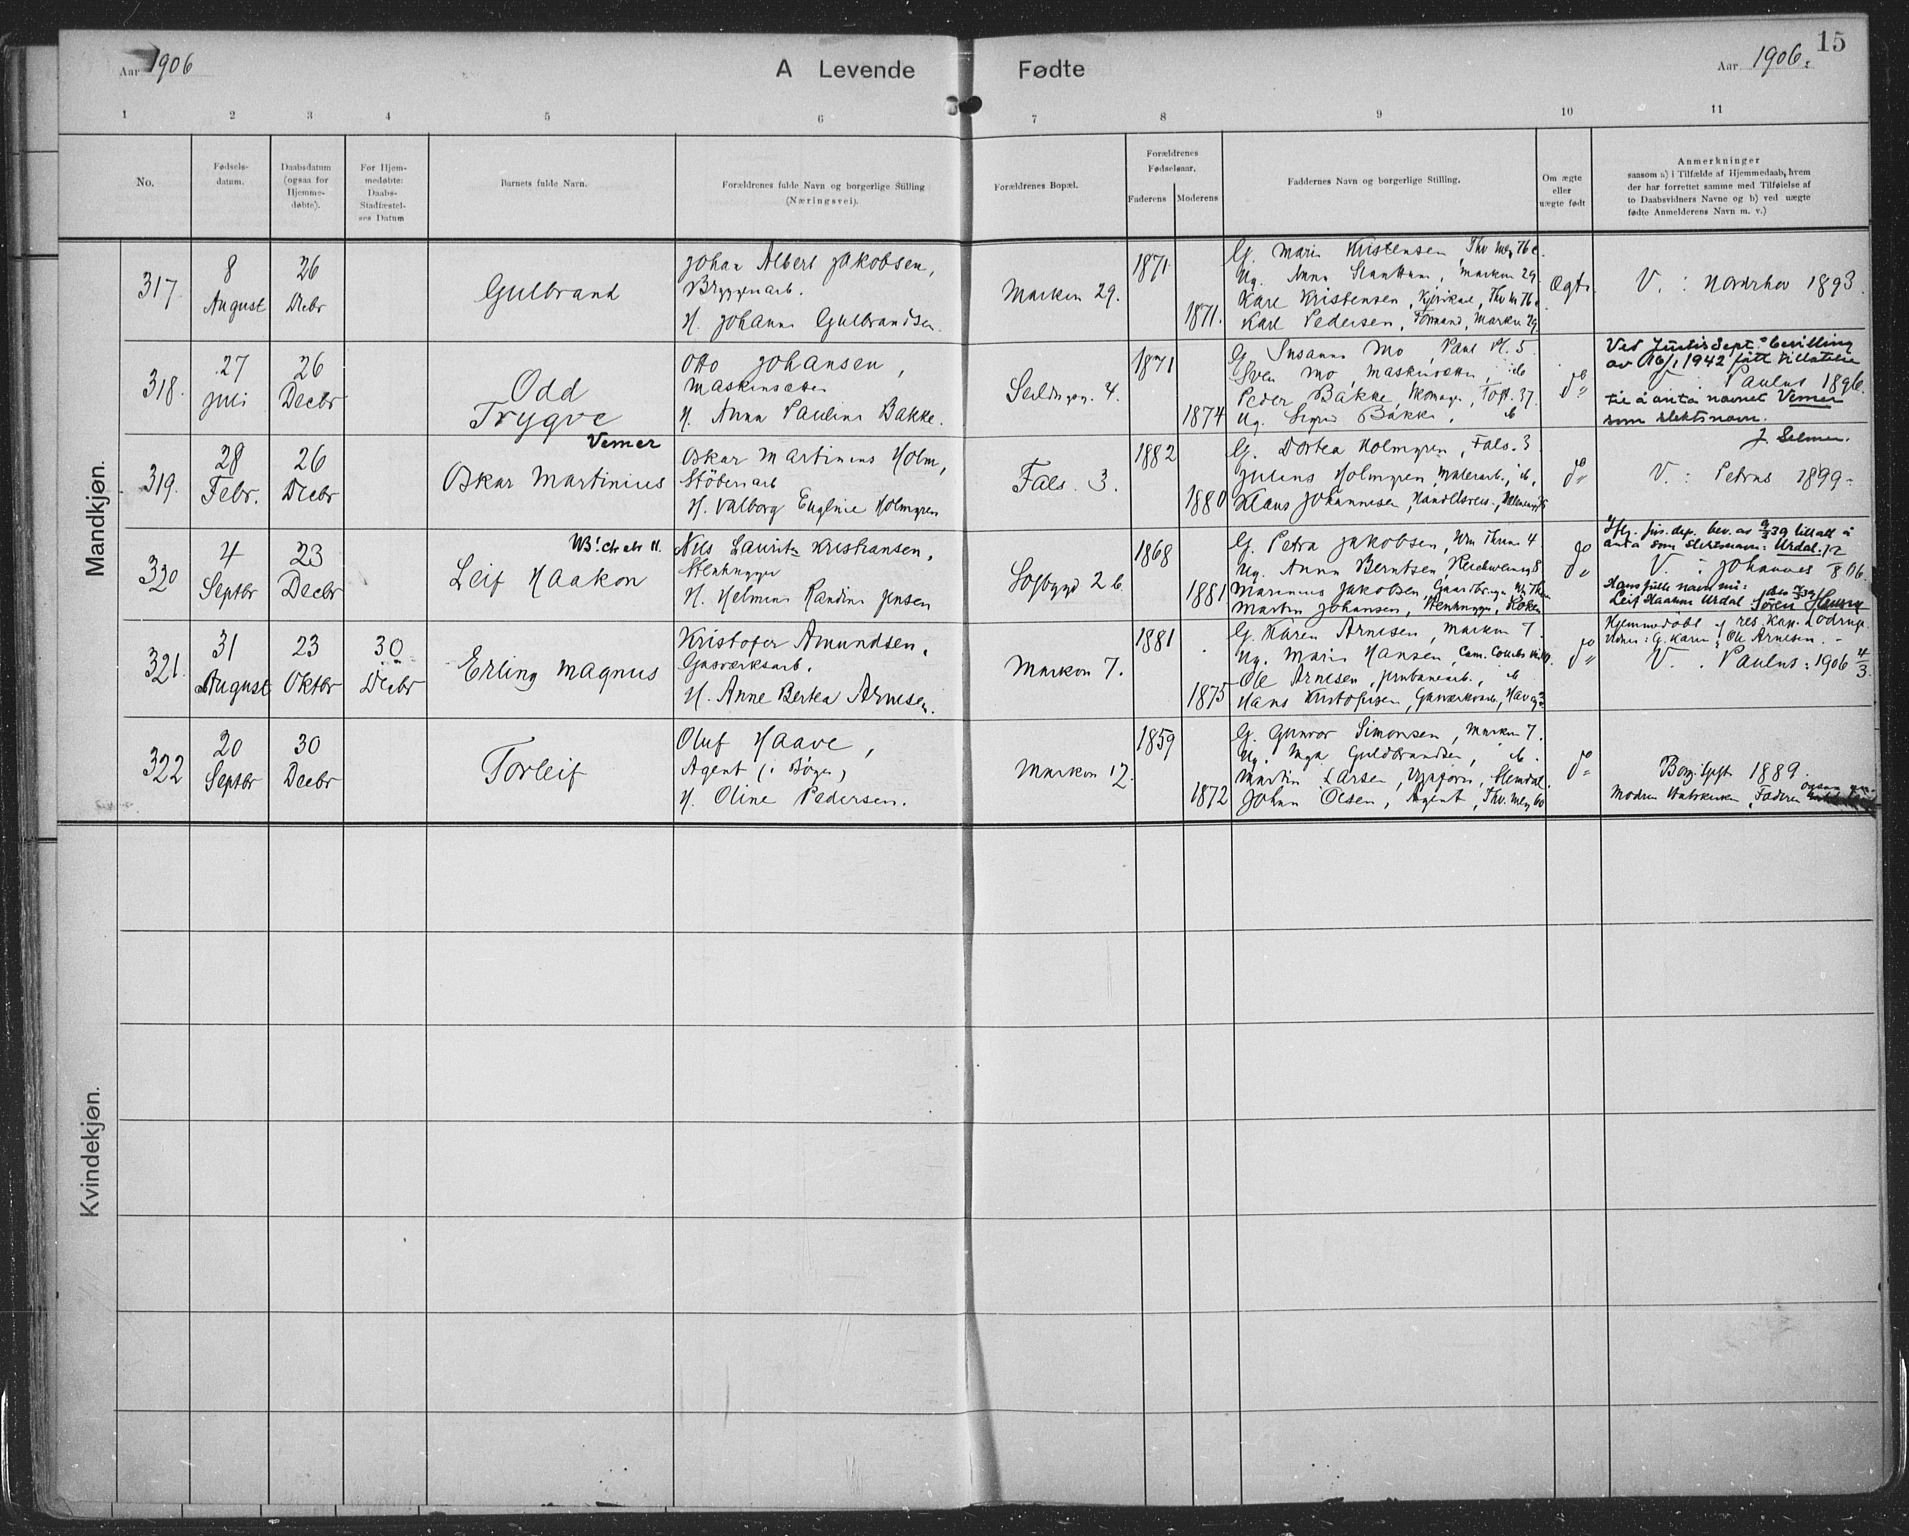 15
Aar 1906
A Levende Fødte
Aar 1906.
1 2 3 4 5 6 7 8 9 10 11
No.
Fødsels-
datum.
Daabsdatum
(ogsaa for
Hjemme-
døbte).
For Hjem-
medøbte:
Daabs-
Stadfæstel-
ses Datum
Barnets fulde Navn.
Forældrenes fulde Navn og borgerlige Stilling
(Næringsvei).
Forældrenes Bopæl.
Forældrenes
Fødselsaar.
Faderens Moderens
Faddernes Navn og borgerlige Stilling.
Om ægte
eller
uægte født
Anmerkninger
saasom a) i Tilfælde af Hjemmedaab, hvem
der har forrettet samme med Tilføielse af
to Daabsvidners Navne og b) ved uægte
fødte Anmelderens Navn m. v.)
Mandkjøn.
317.
8
August
26
Decbr
Gulbrand
Johan Albert Jakobsen,
Bryggeriarb.
H. Johanne Gulbrandsen.
Marken 29.
1871
1871.
G. Marie Kristensen, Thv. Mey. 76 c.
Ug. Anna , Marken 29.
Karl Kristensen, , Thv. M. 76 c
Karl Pedersen, Formand, Marken 29.
Ægte
V. : Norderhov 1893.
318.
27
Juli
26
Decbr
Odd
Trygve
Otto Johansen,
Maskinsætter
H. Anna Pauline Bakke.
Seildugsg. 4.
1871
1874
G. Susanne Mo, Paul Pl. 5.
Sven Mo, Maskinsætter, ib
Peder Bakke, Skomager, Toft. 37.
Ug. Signe Bakke, ib
do
Ved Justisdept.s bevilling
av 16/1 1942 fått tillatelse
V. : Paulus 1896.
til å anta navnet Vemer
som slektsnavn.
J. Selmer.
319.
28
Febr.
26
Decbr
Vemer
Oskar Martinius
Oskar Martinius Holm,
Støberiarb
H. Valborg Euginie Holmgren
Fals. 3.
1882
1880
G. Dortea Holmgren, Fals. 3
Julius Holmgren, Malerarb., ib.
Klaus Johannesen, Handelsreis.,
do
V. : Petrus 1899.
320
4
Septbr
23
Decbr
NB!
Leif Haakon
Nils Lauritz Kristiansen,
Stenhugger
H. Helmine Randine Jensen
Sofbygd 26.
1868
1881
G. Petra Jakobsen, Wm Thrane 4
Ug. Anna Berntsen, 8
Marinius Jakobsen, Gaardbruger,
Martin Johansen, Stenhugger,
do
Iflg. jus. dep. bev. av 9/3 39 tillatt å
anta som slektsnavn: Urdal.
V. : Johannes 12/8 06.
Hans fulle navn nu:
Leif Haakon Urdal. Søren Hansen
321.
31
August
23
Oktbr
30
Decbr
Erling Magnus
Kristofer Amundsen,
Gasværksarb.
H. Anne Berta Arnesen.
Marken 7.
1881
1875
G. Karen Arnesen, Marken 7.
Ug. Marie Hansen, Cam. Colletts
Ole Arnesen, Jernbanearb., ib
Hans Kristofersen, Gasværksarb.,
do
Hjemmedøbt af res. kap. Lodrup.
Vidner: G. Karen, Ole Arnesen. –
V. . Paulus: 1906 4/3.
322
20
Septbr
30
Decbr
Torleif
Oluf Haave,
Agent (i Bøger)
H. Oline Pedersen.
Marken 12.
1859
1872
G. Gunvor Simonsen, Marken 7.
Ug. Inga Guldbrandsen, ib.
Martin Larsen, , Slemdal
Johan Olsen, Agent, Thv. Mey. 60
do
Borg. 1889.
Modren Statskirken, Faderen ogsaa
Kvindekjøn.